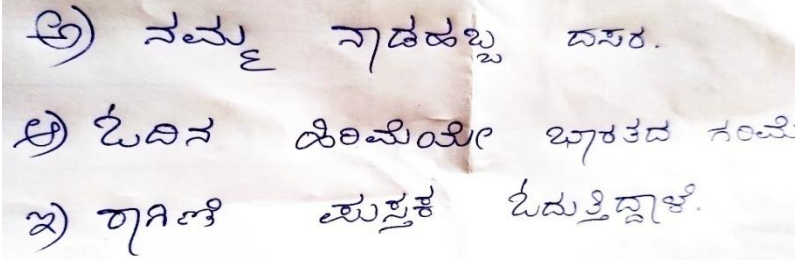 ಅ) ನಮ್ಮ ನಾಡಹಬ್ಬ ದಸರ.
ಆ) ಓದಿನ ಹಿರಿಮೆಯೇ ಭಾರತದ ಗರಿಮೆ
ಇ) ರಾಗಿಣಿ ಪುಸ್ತಕ ಓದುತ್ತಿದ್ದಾಳೆ.